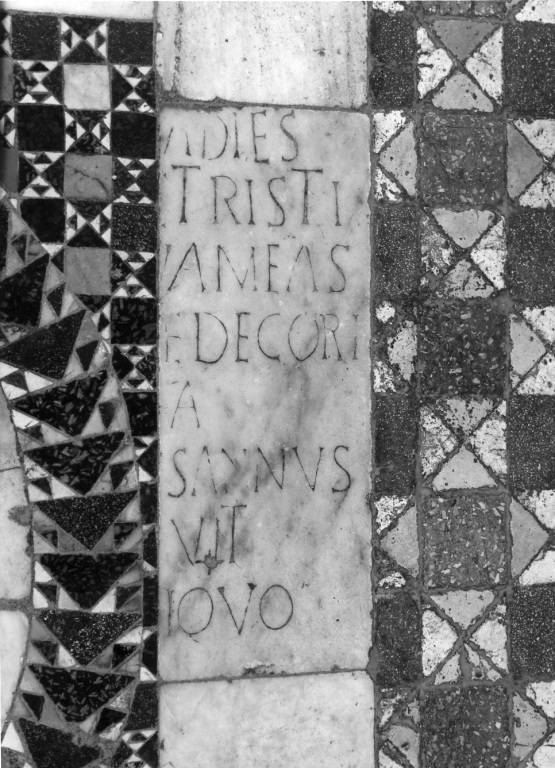 ADIES
TRISTI
AMEAS
EDECORI
A
SAXNVS
VIT
IQVO